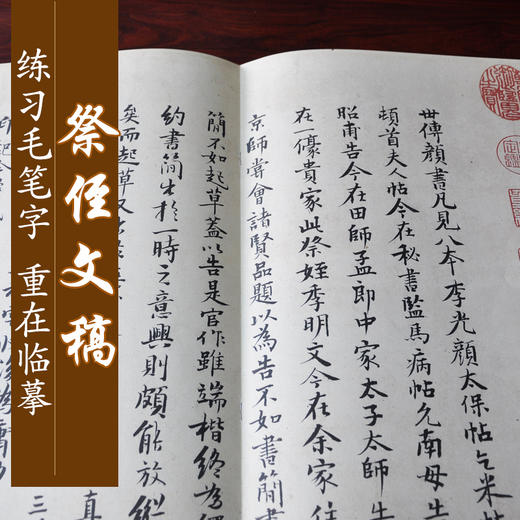 祭侄文稿
练习毛笔字 重在临摹
世傳顏書凡見八本李光顏太保帖乞米
頓首夫人帖今在秘書監馬病帖允南母生
昭甫告今在田師孟郎中家太子太師
在一豪貴家此祭姪季明文今在余家
京師嘗會諸賢品題以為告不如書簡書
簡不如起草蓋以告是官作雖端楷終為繩
約書簡出於一時之意興則頗能放縱
矣而起草又